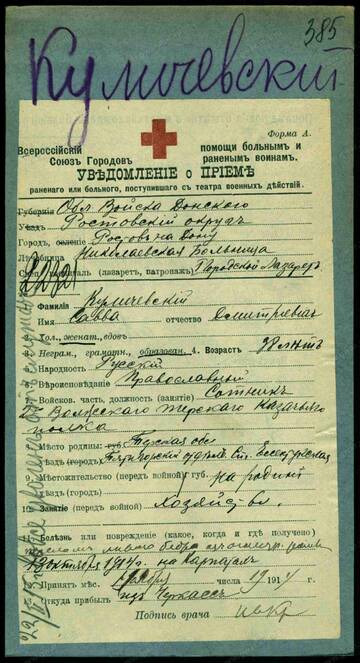 385
Кумичевский
Форма А.
Всероссійскій помощи больнымъ и
Союзъ Городовъ раненымъ воинамъ.
УВѢДОМЛЕНІЕ О ПРІЕМѢ
раненаго или больного, поступившаго съ театра военныхъ дѣйствій.
Губернія Обл. Войска Донского
Уѣздъ Ростовскій округъ
Городъ, селеніе Ростовъ на Дону
Лѣчебница Николаевская Больница
госпиталь (лазаретъ, патронажъ) Городской Лазаретъ
1. Фамилія Кумичевскій
Имя Савва отчество Дмитріевич
2. Хол., женат., вдов.
3. Неграм., грамотн., образован. 4. Возрастъ 38 лѣтъ
Народность Русскій
Вѣроисповѣданіе Православный
Войсков. часть, должность (занятіе) Сотникъ
2 Волжского Терского Казачьяго
полка
Мѣсто родины: губ. Терская обл
уѣздъ (городъ) Пятигорскій отдѣлъ Ст.
9. Мѣстожительство (передъ войной) губ. на родинѣ
уѣздъ (городъ)
10. Занятіе (передъ войной) Хозяйство
Болѣзнь или поврежденіе (какое, когда и гдѣ получено)
лѣваго бедра
октября 1914 г. на Карпатахъ
Принятъ мѣс. числа 1914 г.
Откуда прибылъ изъ Черкассъ
Подпись врача